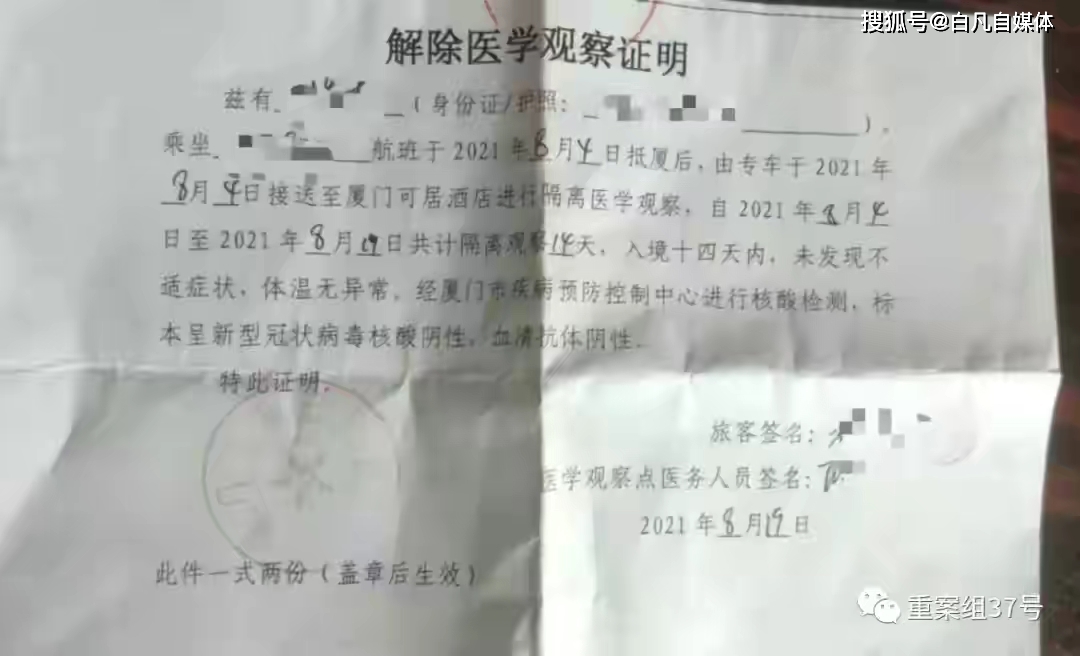 搜狐号@白凡自媒体
解除医学观察证明
兹有 （身份证/护照： ），
乘坐 航班于 2021 年8月4日抵厦后，由专车于 2021 年
8月4日接送至厦门可居酒店进行隔离医学观察，自 2021 年8月4
日至 2021 年8月19日共计隔离观察14天，入境十四天内，未发现不
适症状，体温无异常。经厦门市疾病预防控制中心进行核酸检测，标
本呈新型冠状病毒核酸阴性，血清抗体阴性.
特此证明.
旅客签名：
医学观察点医务人员签名：
2021 年8月19日
此件一式两份（盖章后生效）
重案组37号